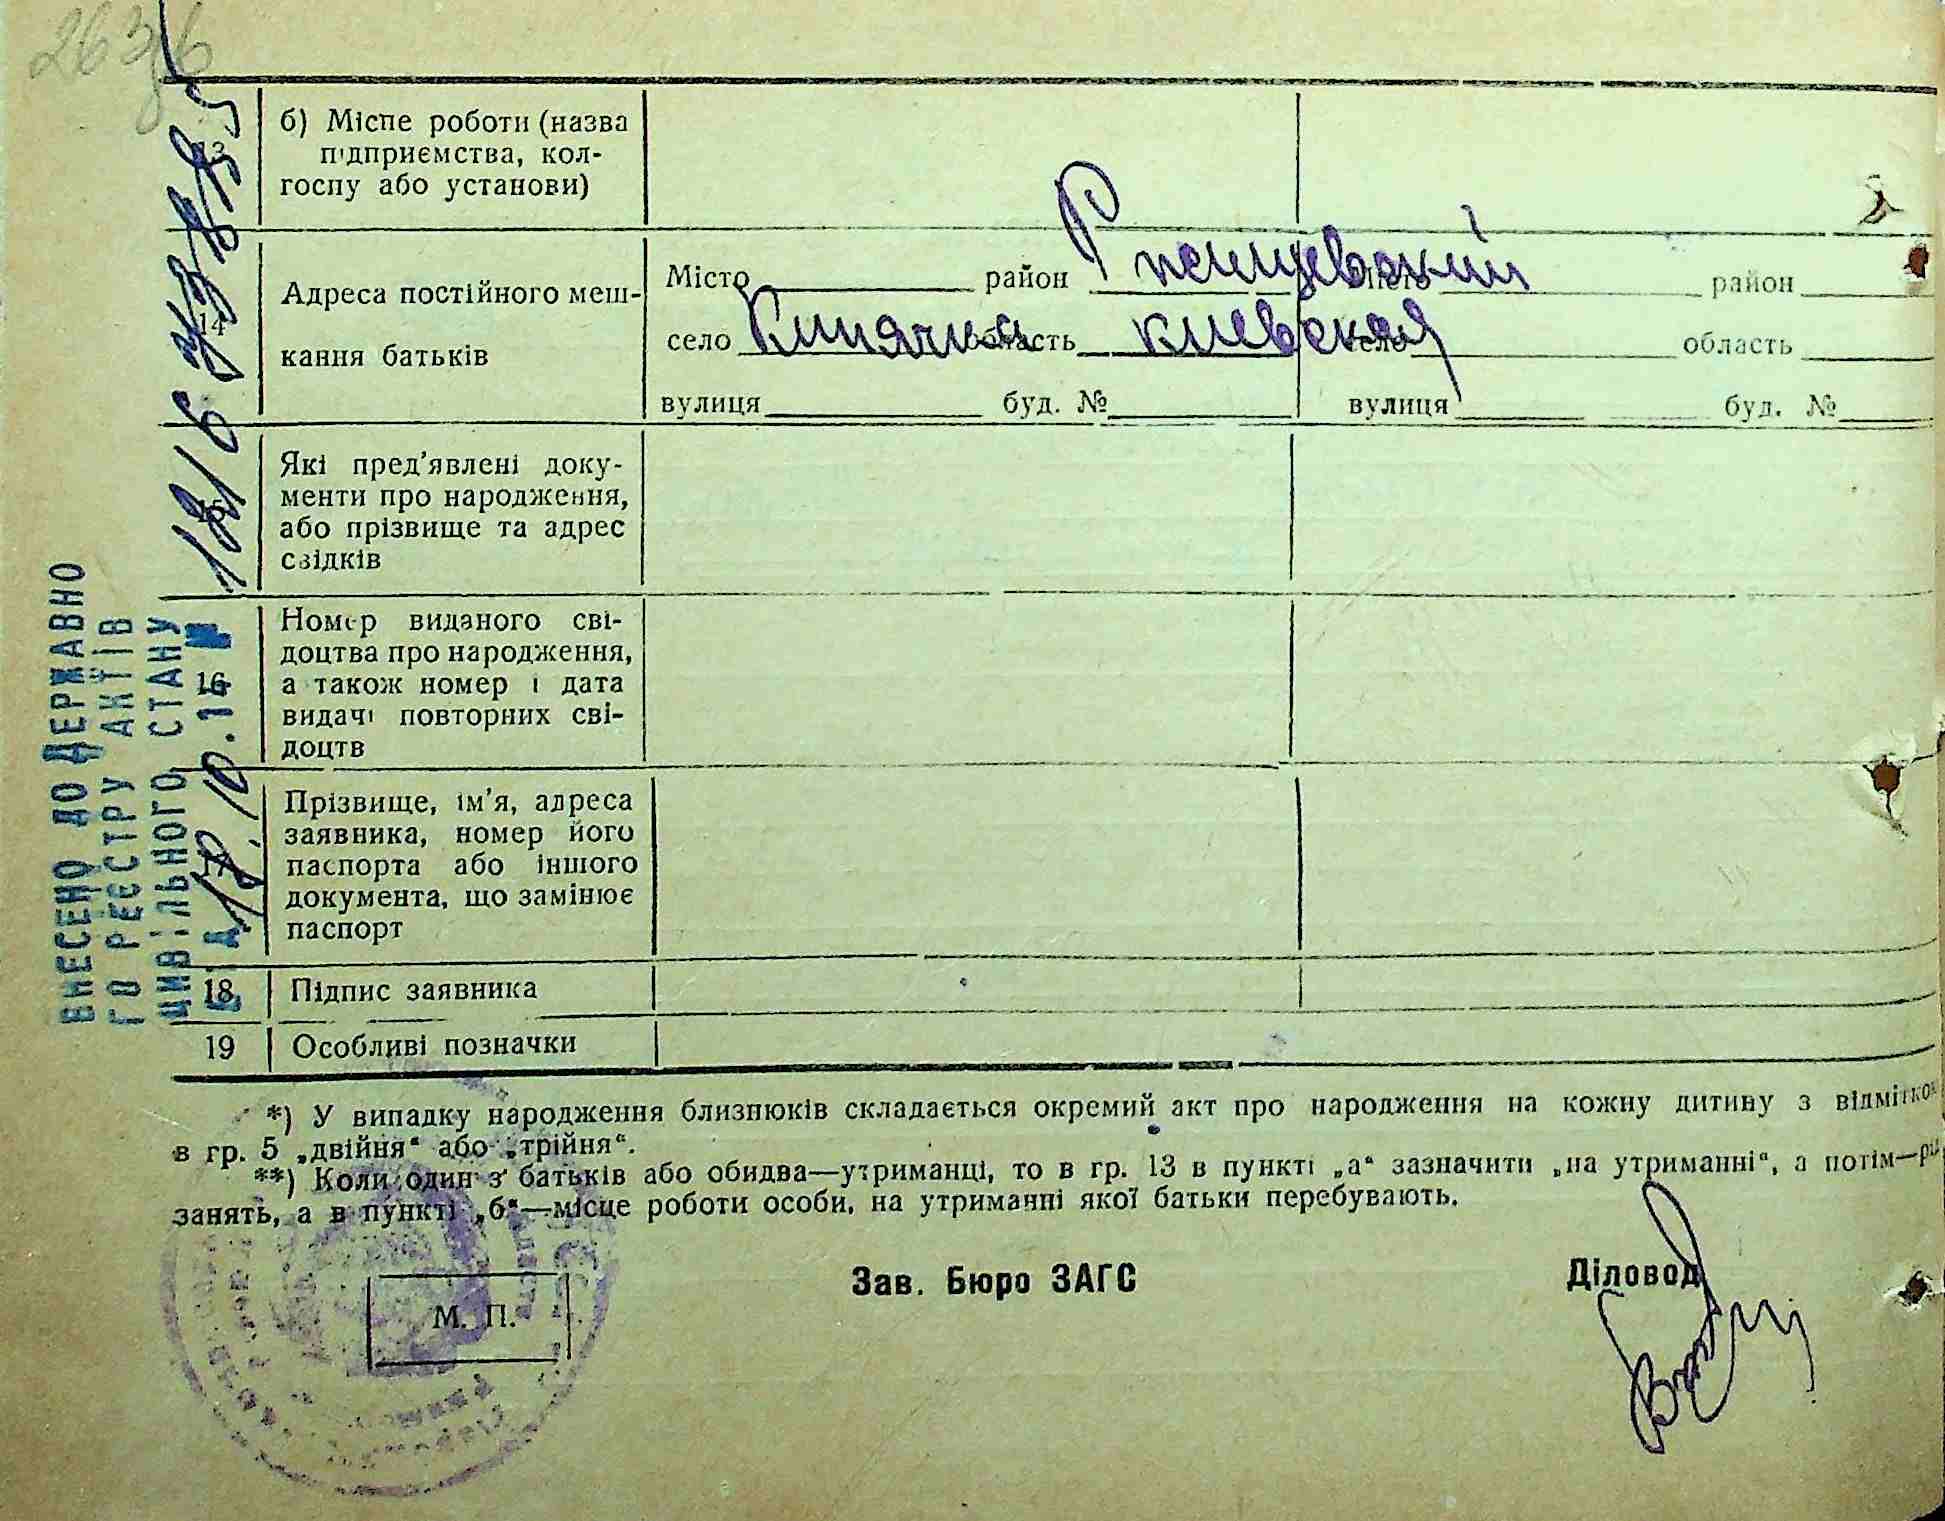 13
б) Місце роботи (назва
підприємства, кол-
госпу або установи)
14
Адреса постійного меш-
кання батьків
Місто район Ржищевский район
село область киевская село область
вулиця буд. № вулиця буд. №
15
Які пред'явлені доку-
менти про народження,
або прізвище та адрес
свідків
16
Номер виданого сві-
доцтва про народження,
а також номер і дата
видачі повторних сві-
доцтв
17
Прізвище, ім'я, адреса
заявника, номер його
паспорта або іншого
документа, що замінює
паспорт
18 Підпис заявника
19 Особливі позначки
ВНЕСЕНО ДО ДЕРЖАВНО
ГО РЕЄСТРУ АКТІВ
ЦИВІЛЬНОГО СТАНУ
*) У випадку народження близнюків складається окремий акт про народження на кожну дитину з відміткою
в гр. 5 „двійня“ або „трійня“.
**) Коли один з батьків або обидва—утриманці, то в гр. 13 в пункті „а“ зазначити „на утриманні“, а потім—рід
занять, а в пункті „б“—місце роботи особи, на утриманні якої батьки перебувають.
Зав. Бюро ЗАГС
Діловод
М. П.